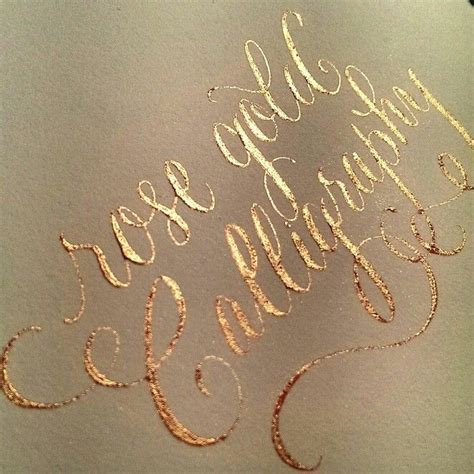 rose gold
Calligraphy